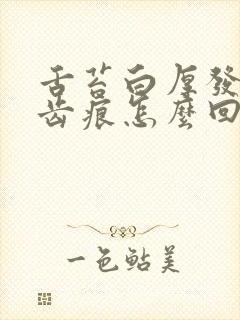 舌苔白厚發
齿痕怎麽回
一色鲇美